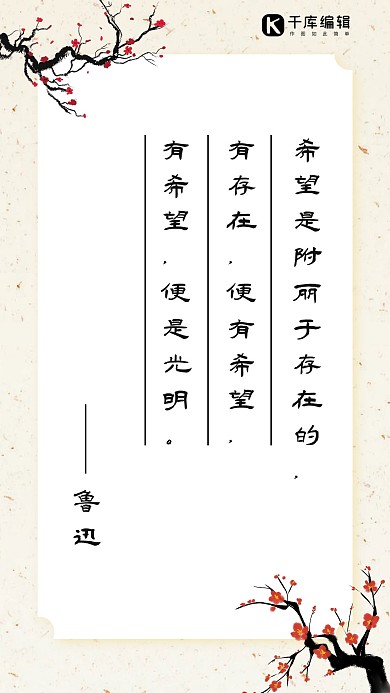 千库编辑
作图如此简单
希望是附丽于存在的，
有存在，便有希望，
有希望，便是光明。
——鲁迅